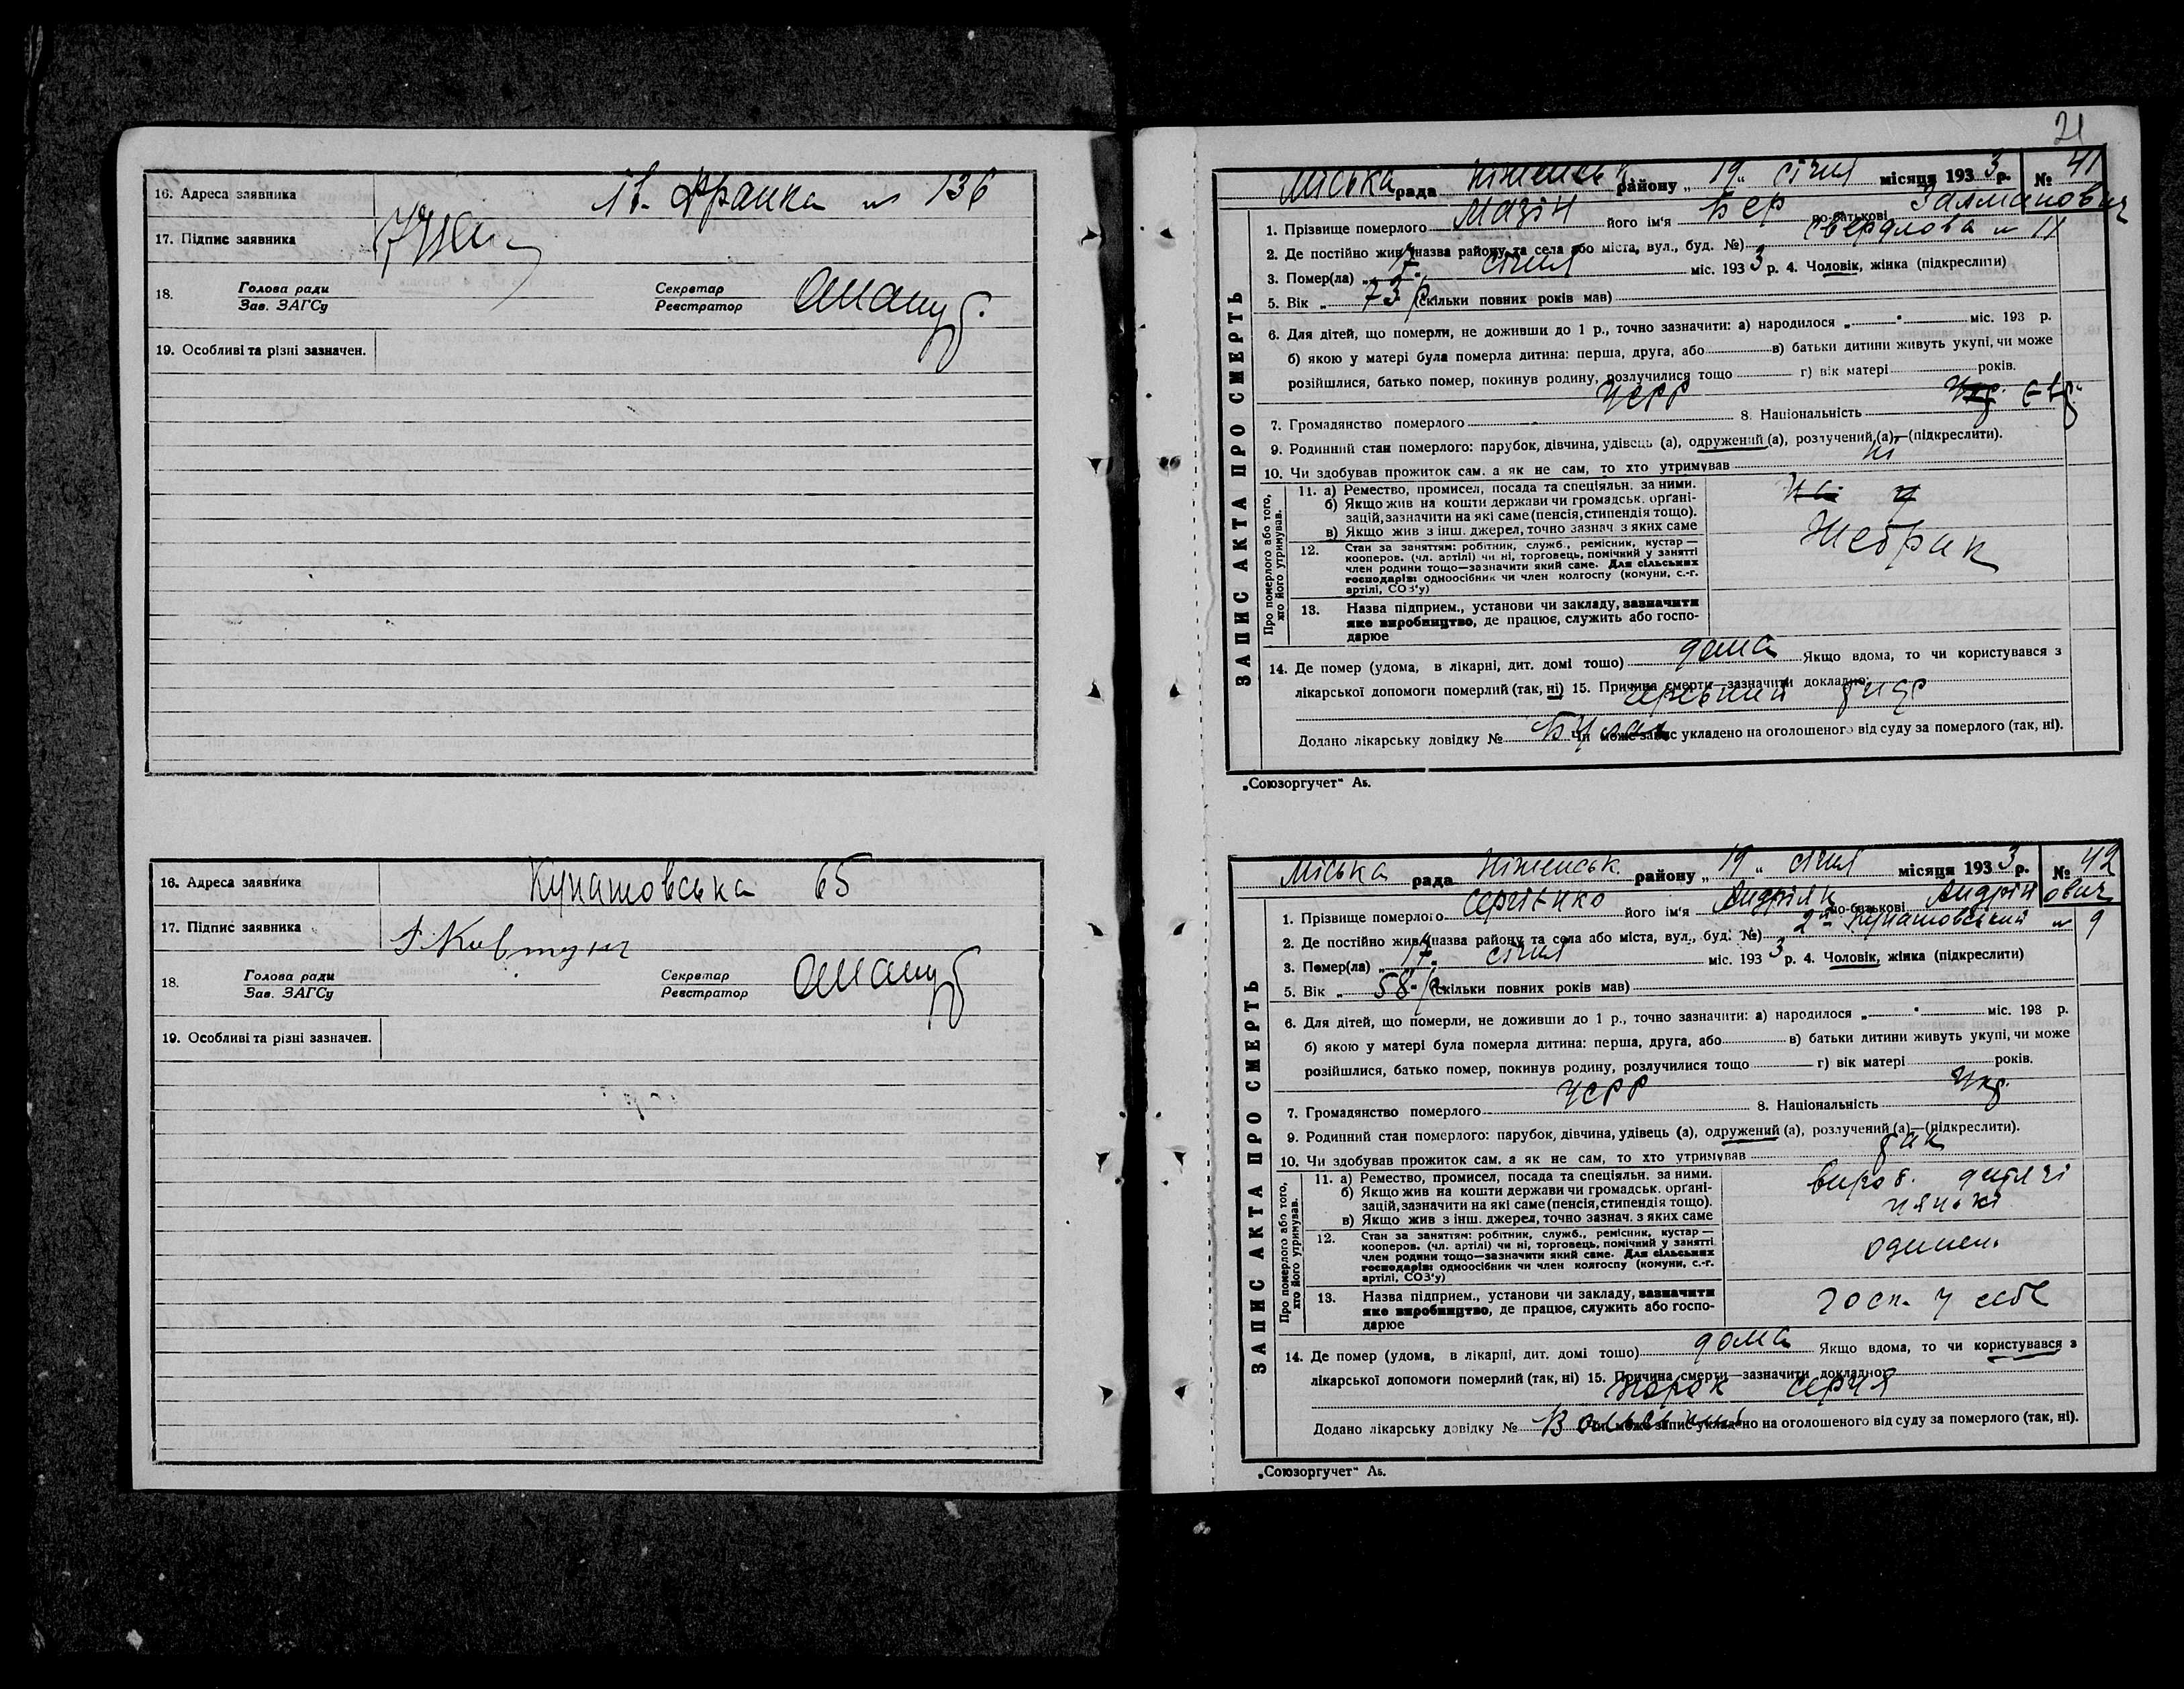 16. Адреса заявника Ів. Франка № 136
17. Підпис заявника
18. Голова ради
Зав. ЗАГСу
Секретар
Реєстратор
19. Особливі та різні зазначен.
16. Адреса заявника Кунашовська 65
17. Підпис заявника Ковтун
18. Голова ради
Зав. ЗАГСу
Секретар
Реєстратор
19. Особливі та різні зазначен.
21
ЗАПИС АКТА ПРО СМЕРТЬ
Міська рада Ніженськ району „ 19 “ січня місяця 193 3 р. № 41
1. Прізвище померлого Мазін його ім'я Бер по-батькові Залманович
2. Де постійно жив (назва району та села або міста, вул., буд. №) Свердлова № 11
3. Помер(ла) „ 17 “ січня міс. 193 3 р. 4. Чоловік, жінка (підкреслити)
5. Вік „ 73 р. (скільки повних років мав)
6. Для дітей, що померли, не доживши до 1 р., точно зазначити: а) народилося „ “ міс. 193 р.
б) якою у матері була померла дитина: перша, друга, або в) батьки дитини живуть укупі, чи може
розійшлися, батько помер, покинув родину, розлучилися тощо г) вік матері років.
7. Громадянство померлого УСРР 8. Національність Укр. Євр.
9. Родинний стан померлого: парубок, дівчина, удівець (а), одружений (а), розлучений (а)—(підкреслити).
10. Чи здобував прожиток сам, а як не сам, то хто утримував ні
Про померлого або того, хто його утримував.
11. а) Ремество, промисел, посада та спеціяльн. за ними.
б) Якщо жив на кошти держави чи громадськ. органі-
зацій, зазначити на які саме (пенсія, стипендія тощо).
в) Якщо жив з інш. джерел, точно зазнач. з яких саме
Жебрак
12. Стан за заняттям: робітник, служб., ремісник, кустар —
кооперов. (чл. артілі) чи ні, торговець, помічний у занятті
член родини тощо—зазначити який саме. Для сільських
господарів: одноосібник чи член колгоспу (комуни, с.-г.
артілі, СОЗ'у)
13. Назва підприєм., установи чи закладу, зазначити
яке виробництво, де працює, служить або госпо-
дарює
14. Де помер (удома, в лікарні, дит. домі тощо) дома Якщо вдома, то чи користувався з
лікарської допомоги померлий (так, ні) 15. Причина смерти—зазначити докладно:
Додано лікарську довідку № Чи може запис укладено на оголошеного від суду за померлого (так, ні).
„Союзоргучет“ Аб.
ЗАПИС АКТА ПРО СМЕРТЬ
Міська рада Ніженськ. району „ 19 “ січня місяця 193 3 р. № 42
1. Прізвище померлого Сергієнко його ім'я Андріян по-батькові Андрійович
2. Де постійно жив (назва району та села або міста, вул., буд. №) 2й Кунашовський № 9
3. Помер(ла) „ 17 “ січня міс. 193 3 р. 4. Чоловік, жінка (підкреслити)
5. Вік „ 58 р. (скільки повних років мав)
6. Для дітей, що померли, не доживши до 1 р., точно зазначити: а) народилося „ “ міс. 193 р.
б) якою у матері була померла дитина: перша, друга, або в) батьки дитини живуть укупі, чи може
розійшлися, батько помер, покинув родину, розлучилися тощо г) вік матері років.
7. Громадянство померлого УСРР 8. Національність Укр.
9. Родинний стан померлого: парубок, дівчина, удівець (а), одружений (а), розлучений (а)—(підкреслити).
10. Чи здобував прожиток сам, а як не сам, то хто утримував так
Про померлого або того, хто його утримував.
11. а) Ремество, промисел, посада та спеціяльн. за ними.
б) Якщо жив на кошти держави чи громадськ. органі-
зацій, зазначити на які саме (пенсія, стипендія тощо).
в) Якщо жив з інш. джерел, точно зазнач. з яких саме
вироб. дитячі
12. Стан за заняттям: робітник, служб., ремісник, кустар —
кооперов. (чл. артілі) чи ні, торговець, помічний у занятті
член родини тощо—зазначити який саме. Для сільських
господарів: одноосібник чи член колгоспу (комуни, с.-г.
артілі, СОЗ'у)
13. Назва підприєм., установи чи закладу, зазначити
яке виробництво, де працює, служить або госпо-
дарює
госп. у себе
14. Де помер (удома, в лікарні, дит. домі тощо) дома Якщо вдома, то чи користувався з
лікарської допомоги померлий (так, ні) 15. Причина смерти—зазначити докладно:
порок серця
Додано лікарську довідку № Чи може запис укладено на оголошеного від суду за померлого (так, ні).
„Союзоргучет“ Аб.